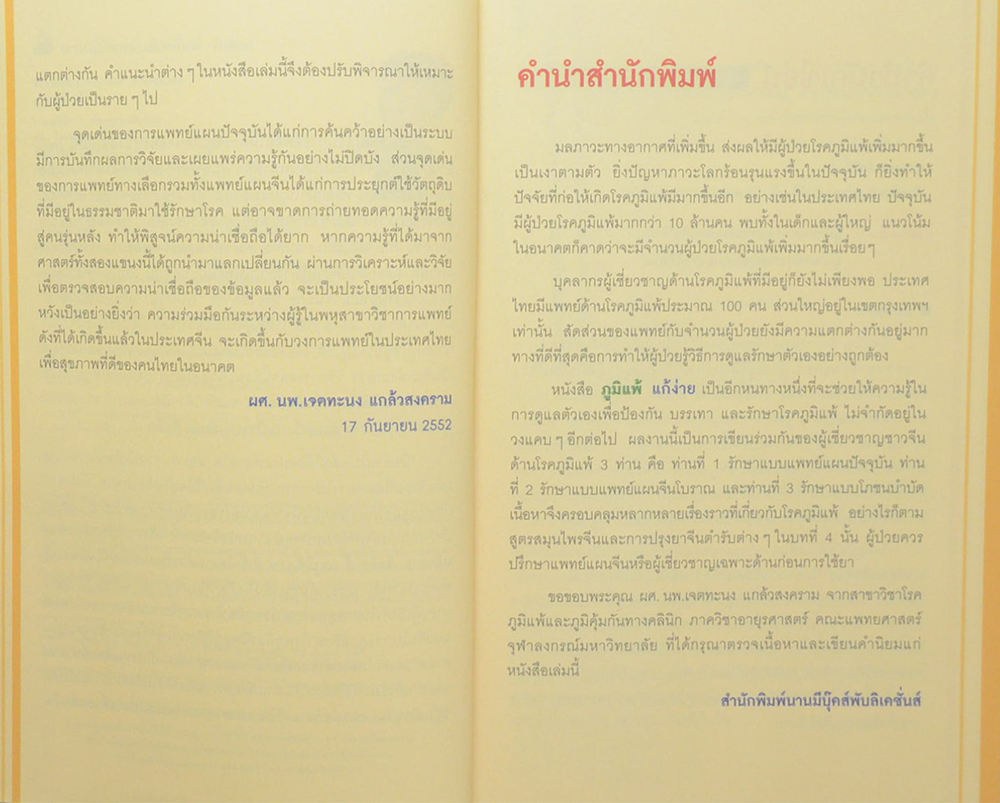 แตกต่างกัน คำแนะนำต่าง ๆ ในหนังสือเล่มนี้จึงต้องปรับพิจารณาให้เหมาะ
กับผู้ป่วยเป็นราย ๆ ไป
จุดเด่นของการแพทย์แผนปัจจุบันได้แก่การค้นคว้าอย่างเป็นระบบ
มีการบันทึกผลการวิจัยและเผยแพร่ความรู้กันอย่างไม่ปิดบัง ส่วนจุดเด่น
ของการแพทย์ทางเลือกรวมทั้งแพทย์แผนจีนได้แก่การประยุกต์ใช้วัตถุดิบ
ที่มีอยู่ในธรรมชาติมาใช้รักษาโรค แต่อาจขาดการถ่ายทอดความรู้ที่มีอยู่
สู่คนรุ่นหลัง ทำให้พิสูจน์ความน่าเชื่อถือได้ยาก หากความรู้ที่ได้มาจาก
ศาสตร์ทั้งสองแขนงนี้ได้ถูกนำมาแลกเปลี่ยนกัน ผ่านการวิเคราะห์และวิจัย
เพื่อตรวจสอบความน่าเชื่อถือของข้อมูลแล้ว จะเป็นประโยชน์อย่างมาก
หวังเป็นอย่างยิ่งว่า ความร่วมมือกันระหว่างผู้รู้ในพหุสาขาวิชาการแพทย์
ดังที่ได้เกิดขึ้นแล้วในประเทศจีน จะเกิดขึ้นกับวงการแพทย์ในประเทศไทย
เพื่อสุขภาพที่ดีของคนไทยในอนาคต
ผศ. นพ.เจตทะนง แกล้วสงคราม
17 กันยายน 2552
คำนำสำนักพิมพ์
มลภาวะทางอากาศที่เพิ่มขึ้น ส่งผลให้มีผู้ป่วยโรคภูมิแพ้เพิ่มมากขึ้น
เป็นเงาตามตัว ยิ่งปัญหาภาวะโลกร้อนรุนแรงขึ้นในปัจจุบัน ก็ยิ่งทำให้
ปัจจัยที่ก่อให้เกิดโรคภูมิแพ้มีมากขึ้นอีก อย่างเช่นในประเทศไทย ปัจจุบัน
มีผู้ป่วยโรคภูมิแพ้มากกว่า 10 ล้านคน พบทั้งในเด็กและผู้ใหญ่ แนวโน้ม
ในอนาคตก็คาดว่าจะมีจำนวนผู้ป่วยโรคภูมิแพ้เพิ่มมากขึ้นเรื่อย ๆ
บุคลากรผู้เชี่ยวชาญด้านโรคภูมิแพ้ที่มีอยู่ก็ยังไม่เพียงพอ ประเทศ
ไทยมีแพทย์ด้านโรคภูมิแพ้ประมาณ 100 คน ส่วนใหญ่อยู่ในเขตกรุงเทพฯ
เท่านั้น สัดส่วนของแพทย์กับจำนวนผู้ป่วยยังมีความแตกต่างกันอยู่มาก
ทางที่ดีที่สุดคือการทำให้ผู้ป่วยรู้วิธีการดูแลรักษาตัวเองอย่างถูกต้อง
หนังสือ ภูมิแพ้ แก้ง่าย เป็นอีกหนทางหนึ่งที่จะช่วยให้ความรู้ใน
การดูแลตัวเองเพื่อป้องกัน บรรเทา และรักษาโรคภูมิแพ้ ไม่จำกัดอยู่ใน
วงแคบ ๆ อีกต่อไป ผลงานนี้เป็นการเขียนร่วมกันของผู้เชี่ยวชาญชาวจีน
ด้านโรคภูมิแพ้ 3 ท่าน คือ ท่านที่ 1 รักษาแบบแพทย์แผนปัจจุบัน ท่าน
ที่ 2 รักษาแบบแพทย์แผนจีนโบราณ และท่านที่ 3 รักษาแบบโภชนบำบัด
เนื้อหาจึงครอบคลุมหลากหลายเรื่องราวที่เกี่ยวกับโรคภูมิแพ้ อย่างไรก็ตาม
สูตรสมุนไพรจีนและการปรุงยาจีนตำรับต่าง ๆ ในบทที่ 4 นั้น ผู้ป่วยควร
ปรึกษาแพทย์แผนจีนหรือผู้เชี่ยวชาญเฉพาะด้านก่อนการใช้ยา
ขอขอบพระคุณ ผศ. นพ.เจตทะนง แกล้วสงคราม จากสาขาวิชาโรค
ภูมิแพ้และภูมิคุ้มกันทางคลินิก ภาควิชาอายุรศาสตร์ คณะแพทยศาสตร์
จุฬาลงกรณ์มหาวิทยาลัย ที่ได้กรุณาตรวจเนื้อหาและเขียนคำนิยมแก่
หนังสือเล่มนี้
สำนักพิมพ์นานมีบุ๊คส์พับลิเคชั่นส์